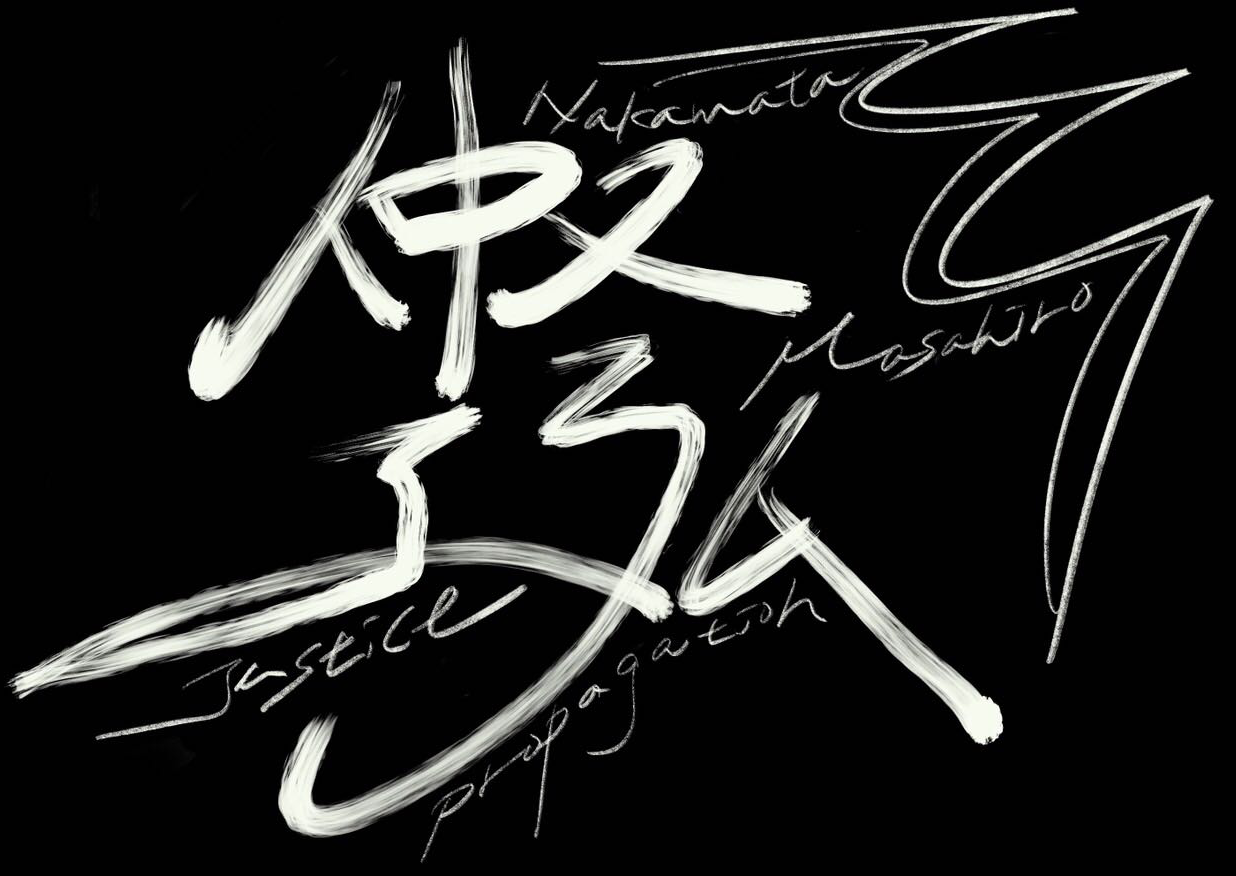 仲又
Nakamata
正弘
Masahiro
Justice
propagation